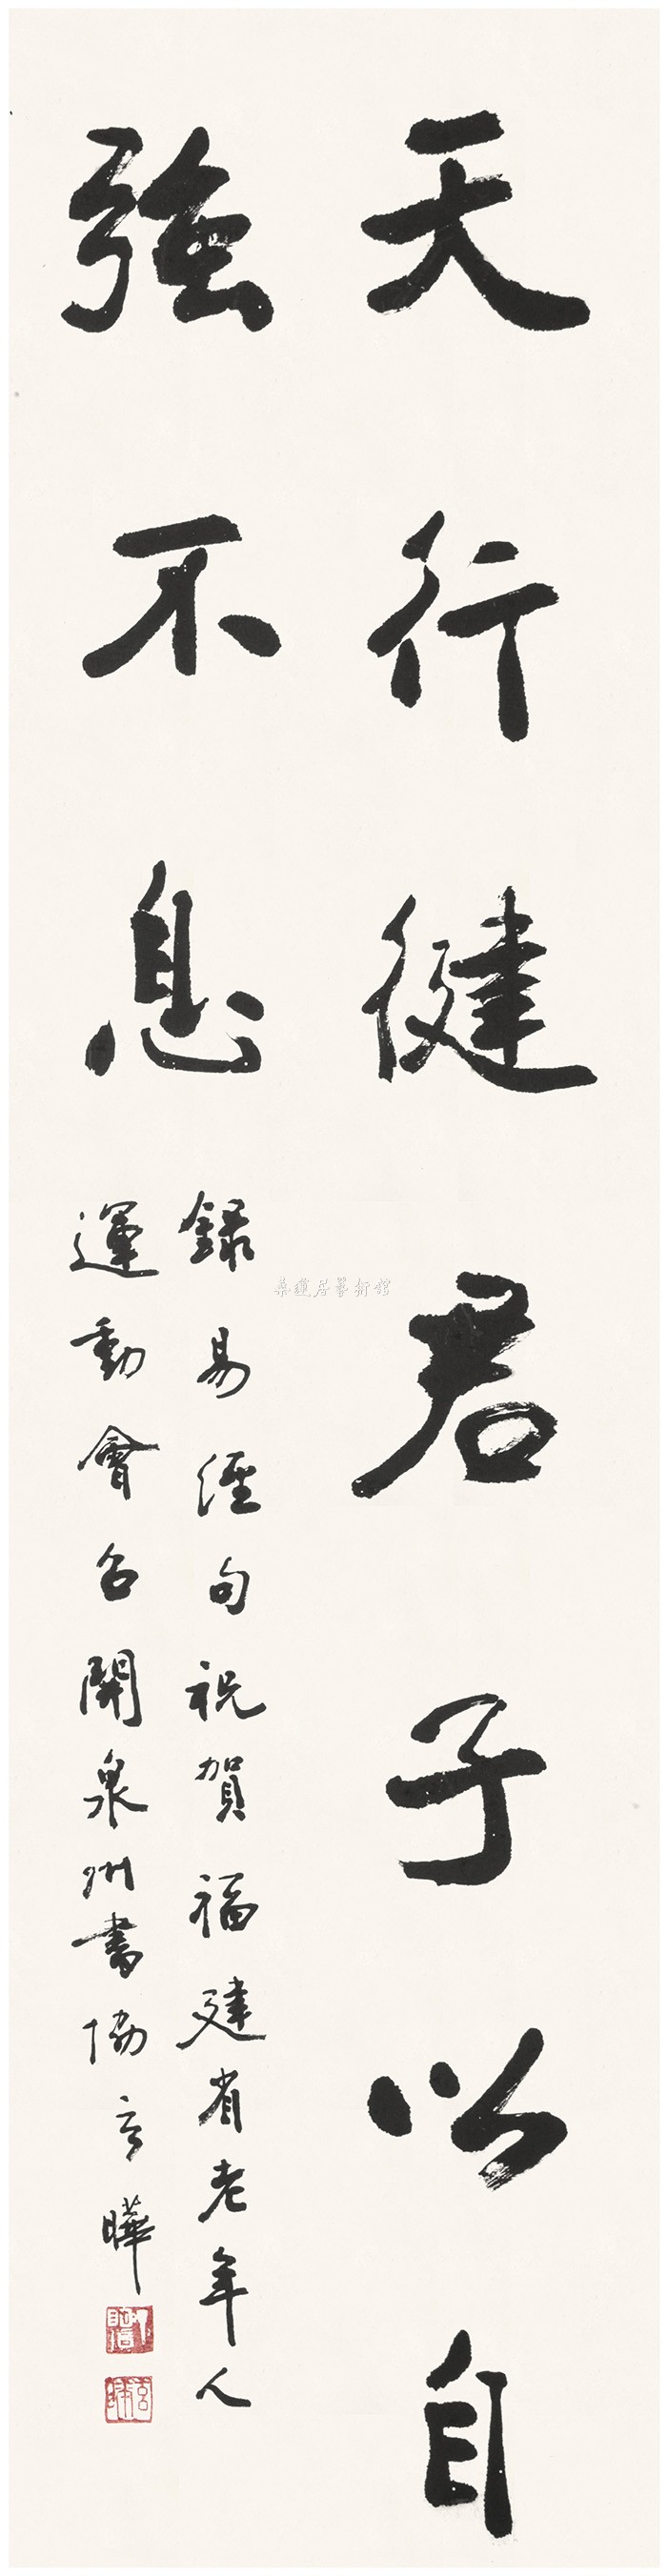 天行健君子以自
強不息
録易經句祝賀福建省老年人
運動會召開泉州書協言曄
桑蓮居藝術馆